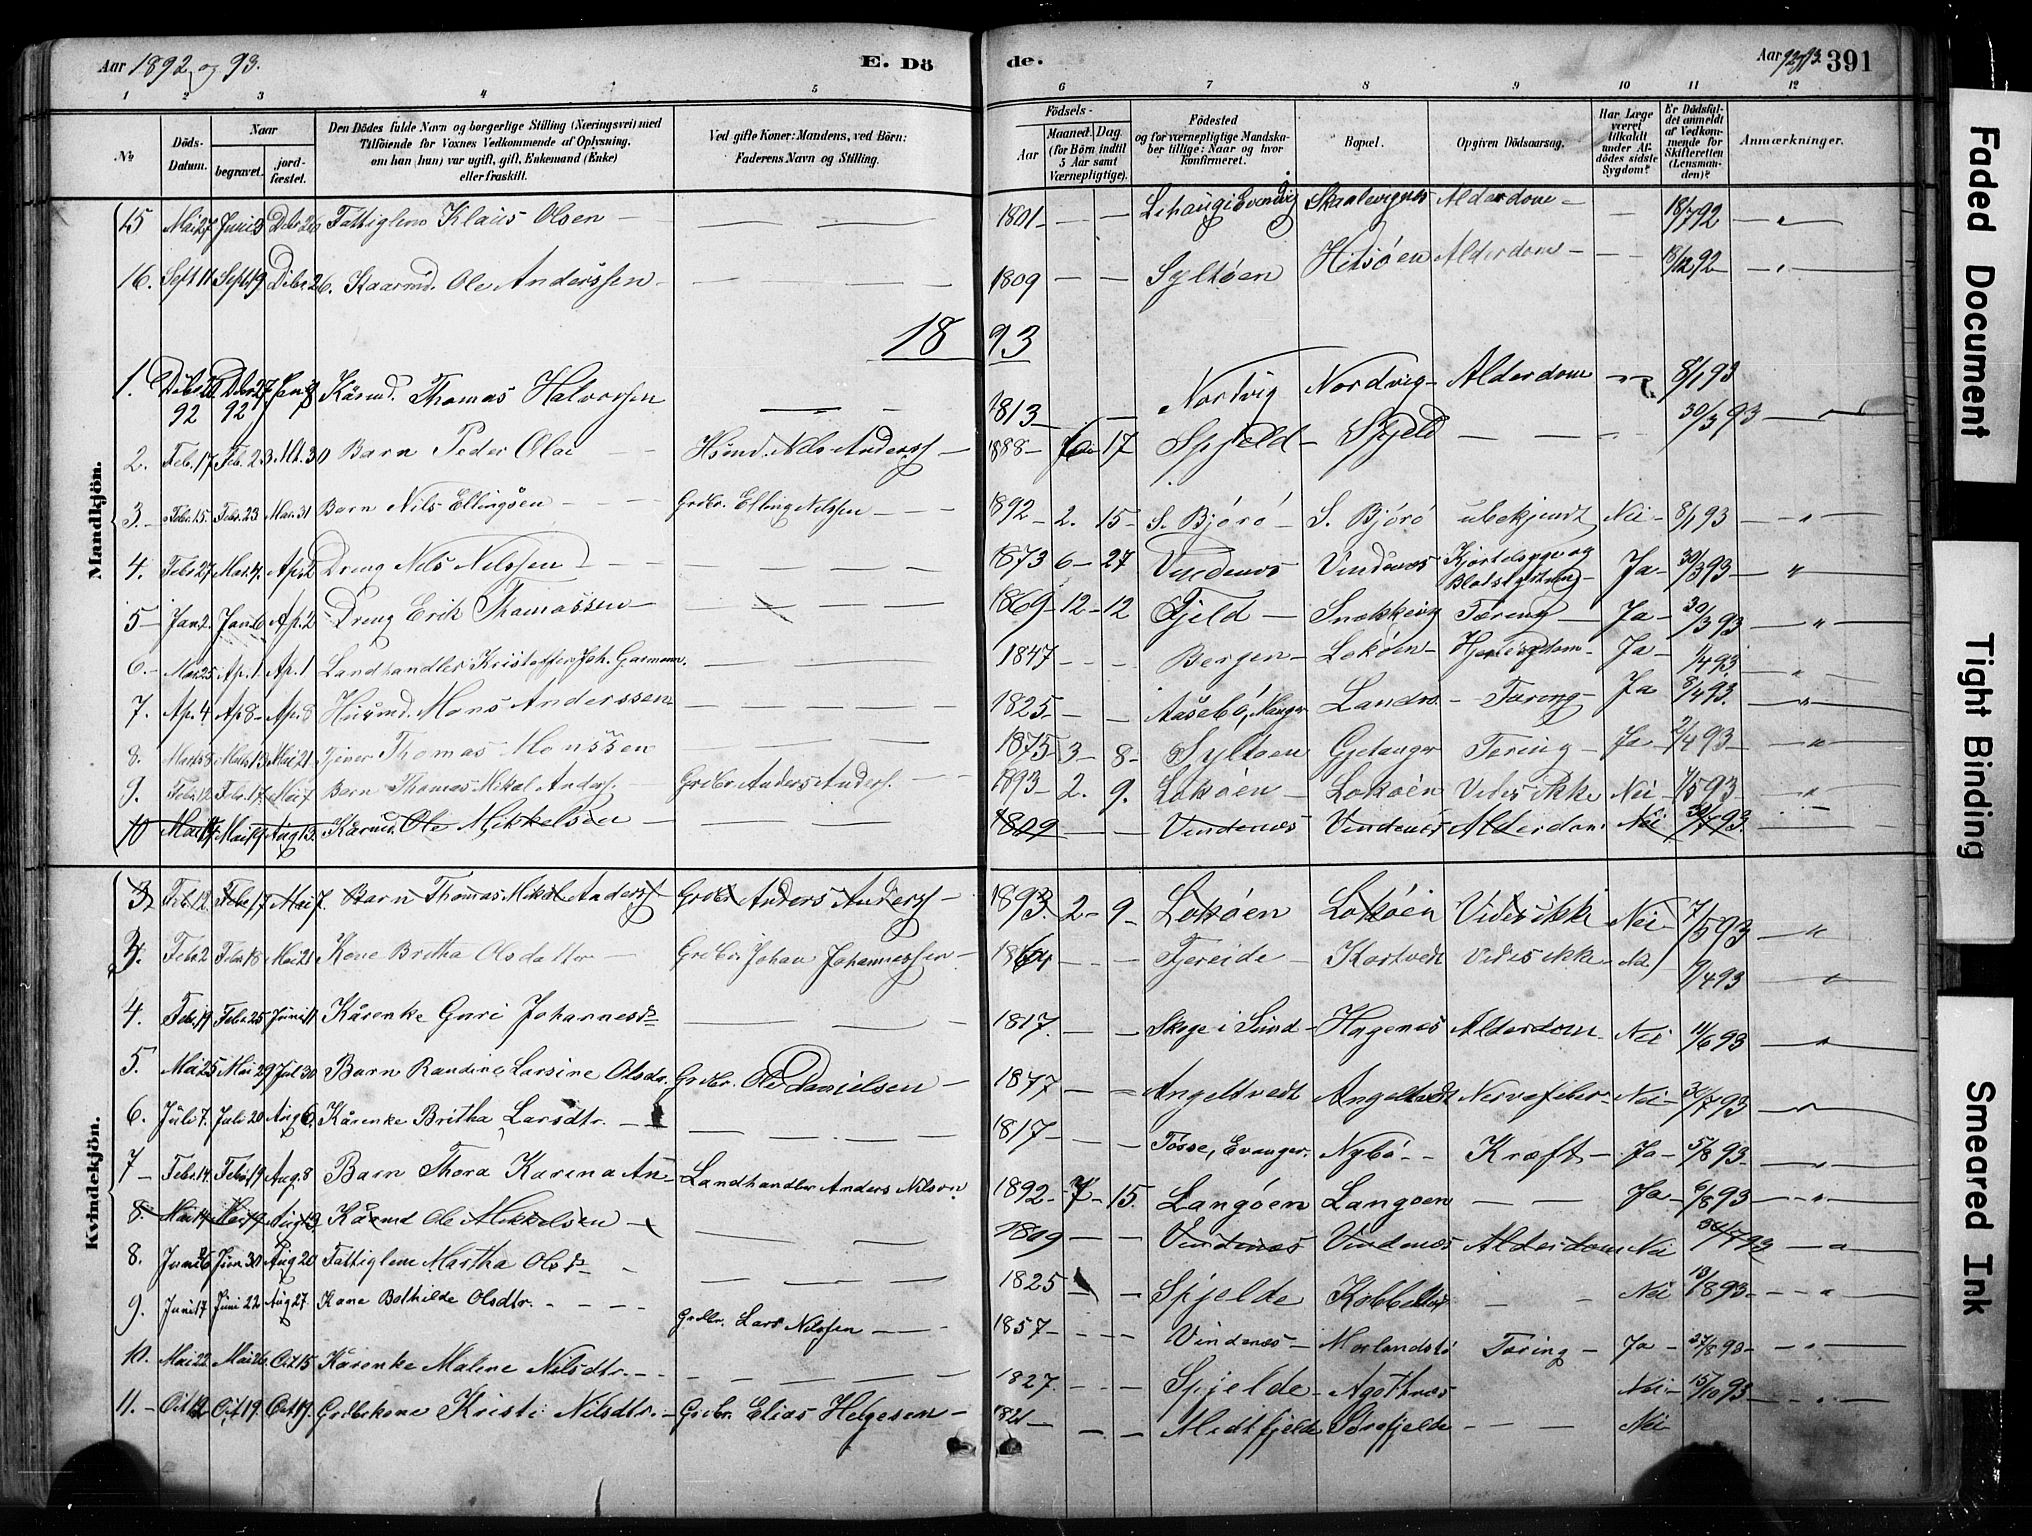 Aar 1892 og 93. E. Dö de. Aar 92 93 391
1 2 3 4 5 6 7 8 9 10 11 12
№ Döds-Datum. Naar begravet. jordfæstet. Den Dödes fulde Navn og borgerlige Stilling (Næringsvei) med Tilföiende for Voxnes Vedkommende af Oplysning, om han (hun) var ugift, gift, Enkemand (Enke) eller fraskilt. Ved gifte Koner: Mandens, ved Börn: Faderens Navn og Stilling. Födsels- Aar Maaned. Dag. (for Börn indtil 5 Aar samt Værnepligtige). Födested og for værnepligtige Mandskaber tillige: Naar og hvor Konfirmeret. Bopæl. Opgiven Dödsaarsag. Har Læge været tilkaldt under Afdödes sidste Sygdom? Er Dödsfaldet anmeldt af Vedkommende for Skifteretten (Lensmanden)? Anmærkninger.
Mandkjön.
15 Mai 27 Juni 3 Dcbr 26 Fattiglem Klaus Olsen — — — 1801 — — Skaalevignes Alderdom — — 18/7 92 — "
16. Sept 11 Sept 19 Dcbr 26. Kaarmd. Ole Anderssen — — — 1809 — — Syltøen Hitsøen Alderdom — — 18/12 92 — "
18 93
1. Dcbr 92 Dcbr 27 92 Jan 8 Kårmd. Thomas Halvorssen — — 1813 — — Nordvig Nordvig Alderdom — 8/1 93
2. Feb. 17 Feb. 23. Mr. 30 Barn Peder Olai — Hsmd. Nils Anderss — 1888 — 17 Spjeld — Spjeld — — — 30/3 93 —
3. Febr. 15. Febr. 23 Mar. 31 Barn Nils Ellingsen — — Grdbr. Elling Nilssen — — 1892 — 2. 15 — S. Bjórö — S. Bjórö ubekjendt Nei — 8/1 93 — "
4. Febr 27 Mar. 4. Ap. 2 Dreng Nils Nilssen — — — — 1873 6 — 27 Vindenes Vindenes Kjertelsyge og Blodstyrtning — Ja — 30/3 93 — "
5 — Jan 2. Jan 6 Ap. 2 Dreng Erik Thomassen — — — — 1869 — 12 — 12 Fjeld — Snekkevig Tæring — Ja — 30/3 93 — "
6 — Mar. 25 Ap. 1 Ap. 1 Landhandler Kristoffer Joh. Garmann. — — — 1847 — — Bergen — Lokøen — Hjertesygdom — Ja — 1/4 93 — "
7. Ap. 4 Ap 8 — Ap. 8 Húsmd. Mons Anderssen — — — 1825 — — Aasebö, Manger Landro — Tæring — Ja 8/4 93. — "
8. Marts 8 Marts 13 Mai 21 Tjener Thomas Monssen — — — 1875 3 — 8 — Syltøen Gjetanger Tæring — Ja — 2/4 93 — "
9. Febr. 12 Febr. 17 Mai 7 Barn Thomas Mikal Anderss. Grdbr Anders Anderss. — — 1893 — 2. 9. Lokøen — Lokøen Vides ikke Nei — 7/5 93 — "
10 Mai 14 Mai 19 Aug 13. Kårmd. Ole Mikkelsen — — — 1809 — — Vindenes Vindenes Alderdom Nei 30/7 93. — "
Kvindekjön.
3. Feb. 12. Febr. 17 Mai 7. Barn Thomas Mikal Anderss Grdbr Anders Anderss — 1893. 2 — 9 — Lokøen Lokøen Vides ikke Nei 7/5 93 — "
3. Febr. 2 Febr. 18 Mai 21 Kone Britha Olsdatter — Grdbr. Johan Johannessen — — Fjereide — Kortvedt Vides ikke — Nei 9/4 93 — "
4. Febr. 19 Febr. 25 Juni 11 Kårenke Guri Johannesdr — — — 1817. — — Skoge i Sund — Hagenes Alderdom. Nei 11/6 93 — "
5. Mai 25 Mai 29 Jul 30 Barn Randine Larsine Olsdr. Grdbr. Ole Danielsen — 1877 — = Angeltvedt Angeltvedt Nervefeber — Nei — 30/7 93 — "
6. Juli 7. Juli 20 Aug 6. Kårenke Britha Larsdtr. — — — — 1817 — — — Tøsse, Evanger. Nybö. — Kræft — Ja — 5/8 93 — "
7 — Febr. 14. Febr. 19 Aug. 8 Barn Thora Karina An — Landhandler Anders Nilsen 1892 — 7 — 15. Langøen Langøen — — Ja — 6/8 93 — "
8. Mai 14 Mai 19 Aug 13 Kårmd Ole Mikkelsen — — — — 1809 — — Vindenæs Vindenæs Alderdom Nei 30/7 93 — "
8. Juni 26 Juni. 30 Aug 20 Fattiglem Martha Olsdr — — — — 1825 — — Spjelde Kobbeltvedt — — Nei 13/8 93 — — "
9. Juni 17 Juni 22 Aug 27. Kone Bothilde Olsdtr. — — — Grdbr. Lars Nilssen — — 1857 — — — Vindenæs — Morlandstø Tæring — Ja — 27/8 93 — "
10. Mai 22 Mai 26. Oct 15 Kårenke Malene Nilsdtr. — — — — 1827. — — Spjelde — Agothnes Nei — 15/10 93 — "
11. — Oct 12 Oct 19. Oct 19. Grdbrkone Kristi Nilsdtr. — Grdbr. Elias Helgesen — 1821 — — — Midtfjelde Sørefjelde — — Nei
Faded Document
Tight Binding
Smeared Ink